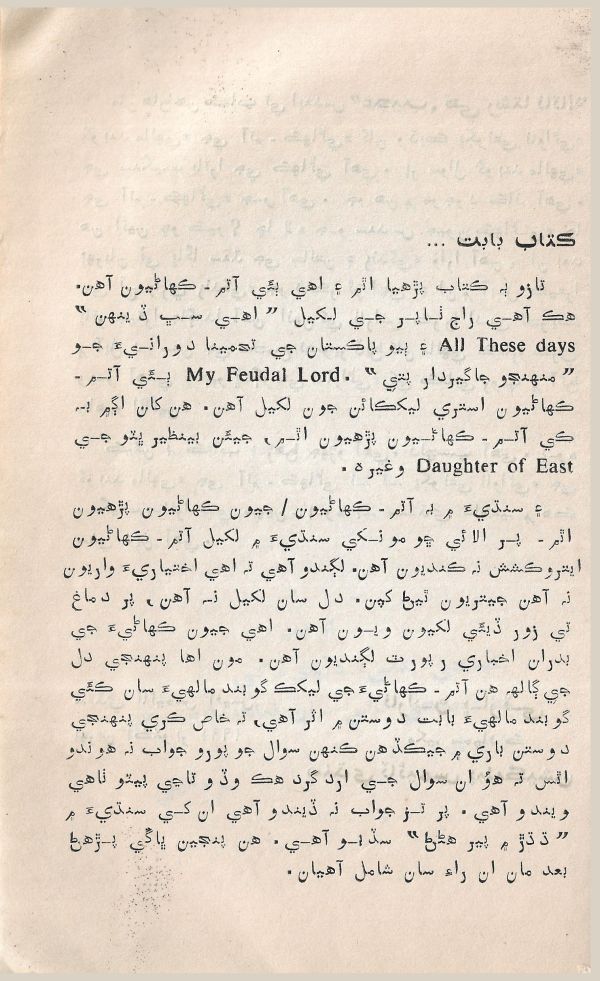 ڪتاب بابت ...
تازو ٻه ڪتاب پڙهيا اٿم ۽ اهي ٻئي آتم ـ ڪهاڻيون آهن.
هڪ آهي راج ٿاپر جي لکيل ”اهي سڀ ڏينهن“
All These days ۽ ٻيو پاڪستان جي تهمينا دورانيءَ جو
”منهنجو جاگيردار پتي“ My Feudal Lord. ٻئي آتم ـ
ڪهاڻيون استري ليکڪائن جون لکيل آهن. هن کان اڳم به
ڪي آتم ـ ڪهاڻيون پڙهيون اٿم، جيئن بينظير ڀٽو جي
Daughter of East وغيره.
۽ سنڌيءَ ۾ به آتم ـ ڪهاڻيون / جيون ڪهاڻيون پڙهيون
اٿم ـ پر الائي ڇو مونکي سنڌيءَ ۾ لکيل آتم ـ ڪهاڻيون
ايتروڪشش نه ڪنديون آهن. لڳندو آهي ته اهي اختياريءَ واريون
نه آهن جيتريون ٿيڻ کپن. دل سان لکيل نه آهن، پر دماغ
تي زور ڏيئي لکيون ويون آهن. اهي جيون ڪهاڻيءَ جي
بدران اخباري رپورٽ لڳنديون آهن. مون اها پنهنجي دل
جي ڳالهہ هن آتم ـ ڪهاڻيءَ جي ليکڪ گوبند مالهيءَ سان ڪئي
گوبند مالهيءَ بابت دوستن ۾ اثر آهي، ته خاص ڪري پنهنجي
دوستن باري ۾ جيڪڏهن ڪنهن سوال جو پورو جواب نہ هوندو
اٿس ته هو ان سوال جي ارد گرد هڪ وڏو تاڃي پيٽو ٺاهي
ويندو آهي. پر تز جواب نہ ڏيندو آهي ان کي سنڌيءَ ۾
”ڌڌڙ ۾ پير هڻڻ“ سڏبو آهي. هن پنجين ڀاڱي پڙهڻ
بعد مان ان راءِ سان شامل آهيان.